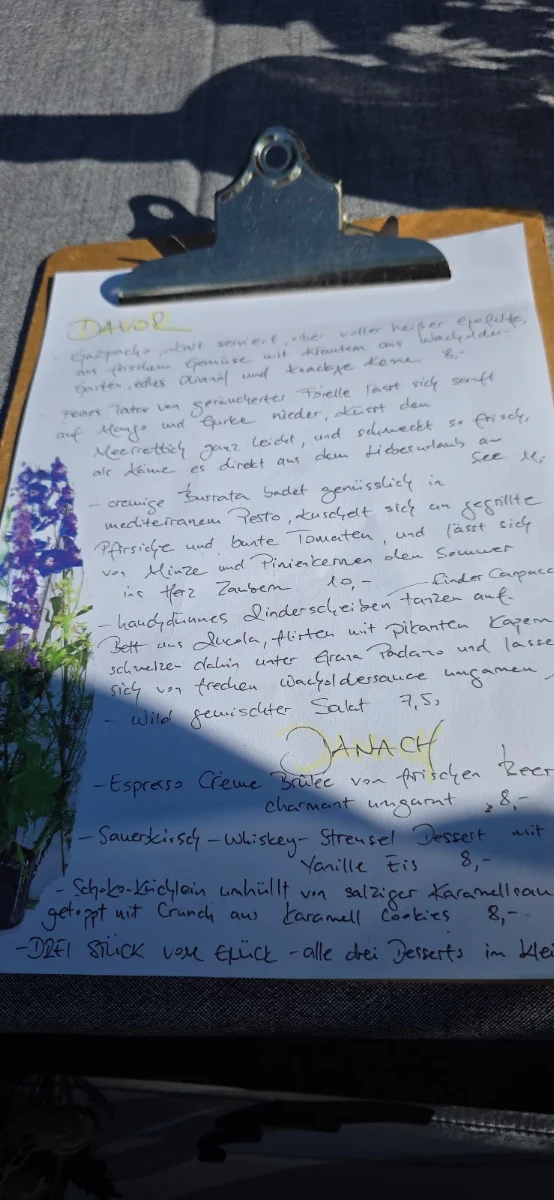 DAVOR
- Gazpacho, kalt serviert, aber voller heißer Gefühle,
aus frischem Gemüse mit Kräutern aus Wacholder-
Garten, edles Olivenöl und knackige Kerne 8,-
- Feines Tatar von geräucherter Forelle lässt sich sanft
auf Mango und Gurke nieder, küsst den
Meerrettich ganz leicht, und schmeckt so frisch,
als käme es direkt aus dem Liebesurlaub am
See
- cremige Burrata badet genüsslich in
mediterranem Pesto, kuschelt sich an gegrillte
Pfirsiche und bunte Tomaten, und lässt sich
von Minze und Pinienkernen den Sommer
ins Herz Zaubern 10,-
Rinder Carpacc
- hauchdünnes Rinderscheiben tanzen auf
Bett aus Rucola, flirten mit pikanten Kapern
schmelzen dahin unter Grana Padano und lasse
sich von frechen Wacholdersauce umgarnen
- Wild gemischter Salat 7,5,
DANACH
- Espresso Creme Brûlée von frischen Beer
charmant umgarnt 8,-
- Sauerkirsch - Whiskey - Streusel Dessert mit
Vanille Eis 8,-
- Schoko-Küchlein umhüllt von salziger Karamellsau
getoppt mit Crunch aus Karamell Cookies 8,-
- DREI STÜCK VOM GLÜCK - alle drei Desserts im klei